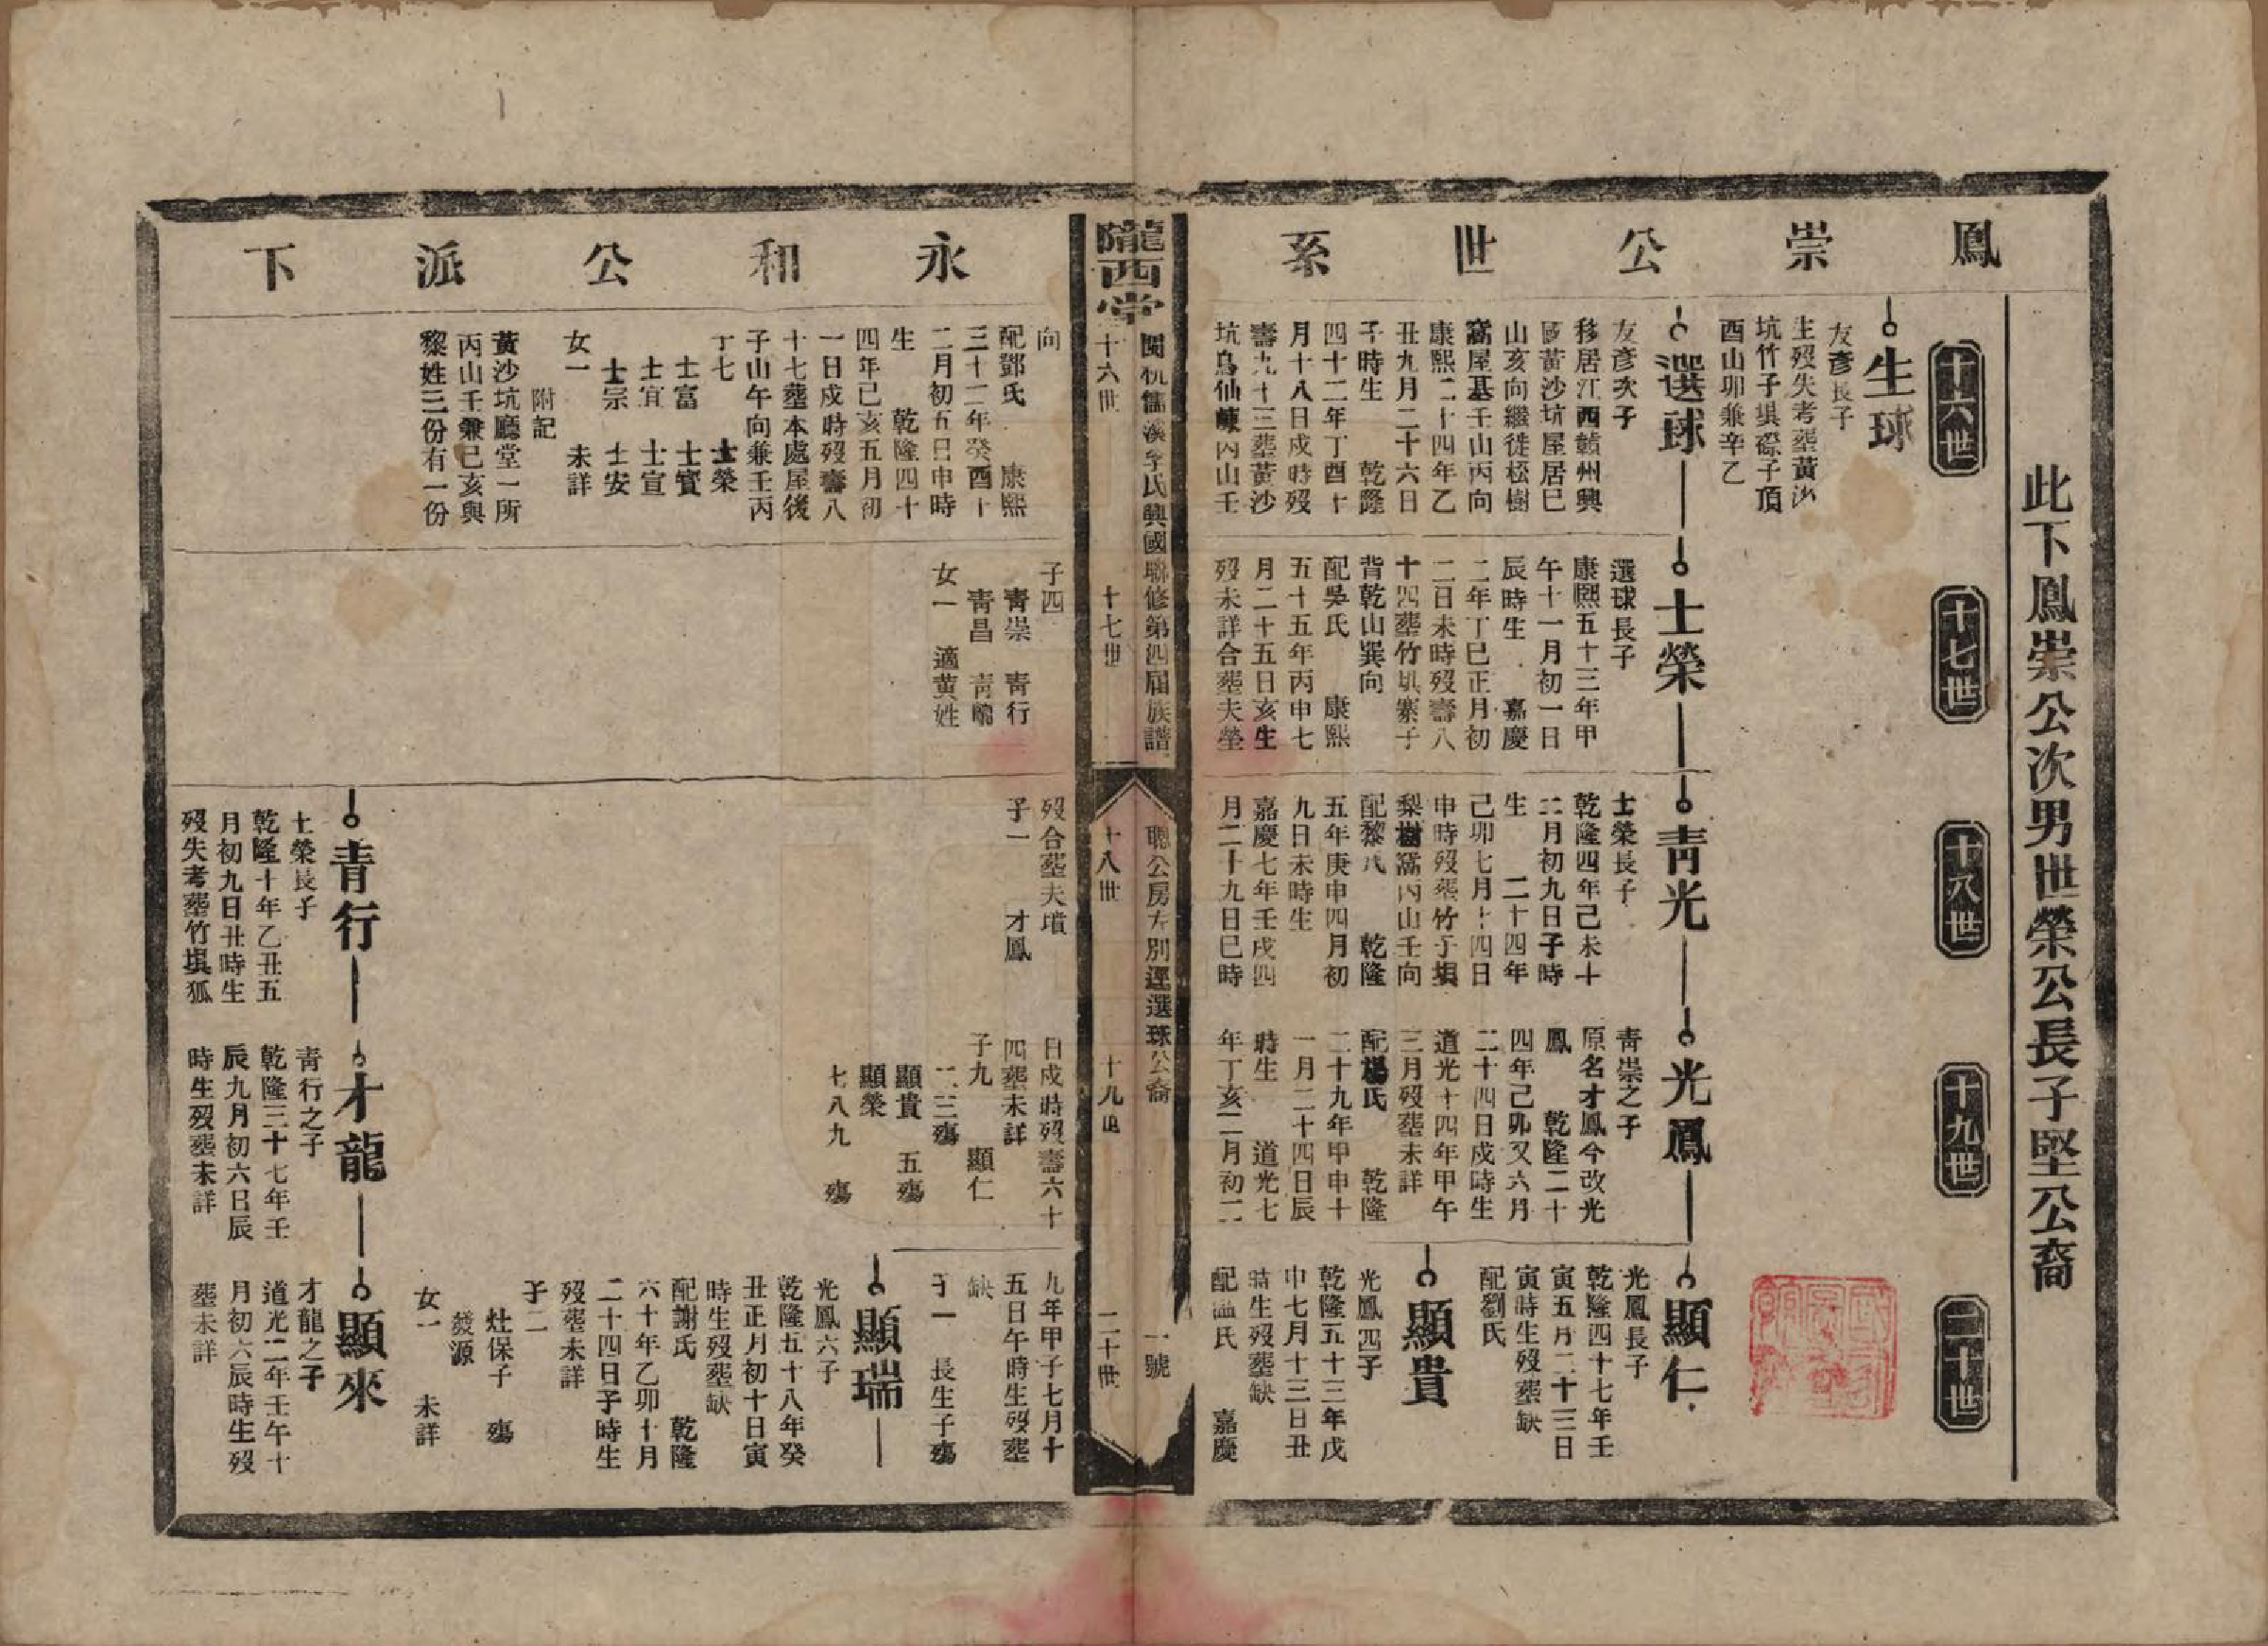 鳳崇公世系
此下鳳崇公次男世榮公長子堅公裔
十六世
十七世
十八世
十九世
二十世
生球
友彥長子
生歿失考葬黃沙
坑竹子塅磜子頂
酉山卯兼辛乙
選球
友彥次子
移居江西贛州興
國黃沙坑屋居巳
山亥向繼徙松樹
窩屋基壬山丙向
康熙二十四年乙
丑九月二十六日
子時生 乾隆
四十二年丁酉十
月十八日戌時歿
壽九十三葬黃沙
坑烏仙崠丙山壬
士榮
選球長子
康熙五十三年甲
午十一月初一日
辰時生 嘉慶
二年丁巳正月初
二日未時歿壽八
十四葬竹塅寨子
背乾山巽向
配吳氏 康熙
五十五年丙申七
月二十五日亥生
歿未詳合葬夫塋
青光
士榮長子
乾隆四年己未十
二月初九日子時
生 二十四年
己卯七月十四日
申時歿葬竹子塅
梨樹窩丙山壬向
配黎氏 乾隆
五年庚申四月初
九日未時生
嘉慶七年壬戌四
月二十九日巳時
光鳳
青崇之子
原名才鳳今改光
鳳 乾隆二十
四年己卯又六月
二十四日戌時生
道光十四年甲午
三月歿葬未詳
配楊氏 乾隆
二十九年甲申十
一月二十四日辰
時生 道光七
年丁亥二月初二
顯仁
光鳳長子
乾隆四十七年壬
寅五月二十三日
寅時生歿葬缺
配劉氏
顯貴
光鳳四子
乾隆五十三年戊
申七月十三日丑
時生歿葬缺
配溫氏 嘉慶
隴西堂
閩杭舊溪李氏興國聯修第四屆族譜
十六世 十七世 十八世 十九世 二十世
聰公房 別逕選球公裔
一號
永和公派下
向
配鄧氏 康熙
三十二年癸酉十
二月初五日申時
生 乾隆四十
四年己亥五月初
一日戌時歿壽八
十七葬本處屋後
子山午向兼壬丙
丁七 士榮
士富 士賓
士宜 士宣
士宗 士安
女一 未詳
附記
黃沙坑廳堂一所
丙山壬兼巳亥與
黎姓三份有一份
子四
青崇 青行
青昌 青
女一 適黃姓
歿合葬夫墳
子一 才鳳
日戌時歿壽六十
四葬未詳
子九 顯仁
二三殤
顯貴 五殤
顯榮
七八九 殤
九年甲子七月十
五日午時生歿葬
缺
子一 長生子殤
顯瑞
光鳳六子
乾隆五十八年癸
丑正月初十日寅
時生歿葬缺
配謝氏 乾隆
六十年乙卯十月
二十四日子時生
歿葬未詳
子二
灶保子 殤
發源
女一 未詳
青行
士榮長子
乾隆十年乙丑五
月初九日丑時生
歿失考葬竹塅狐
才龍
青行之子
乾隆三十七年壬
辰九月初六日辰
時生歿葬未詳
顯來
才龍之子
道光二年壬午十
月初六辰時生歿
葬未詳